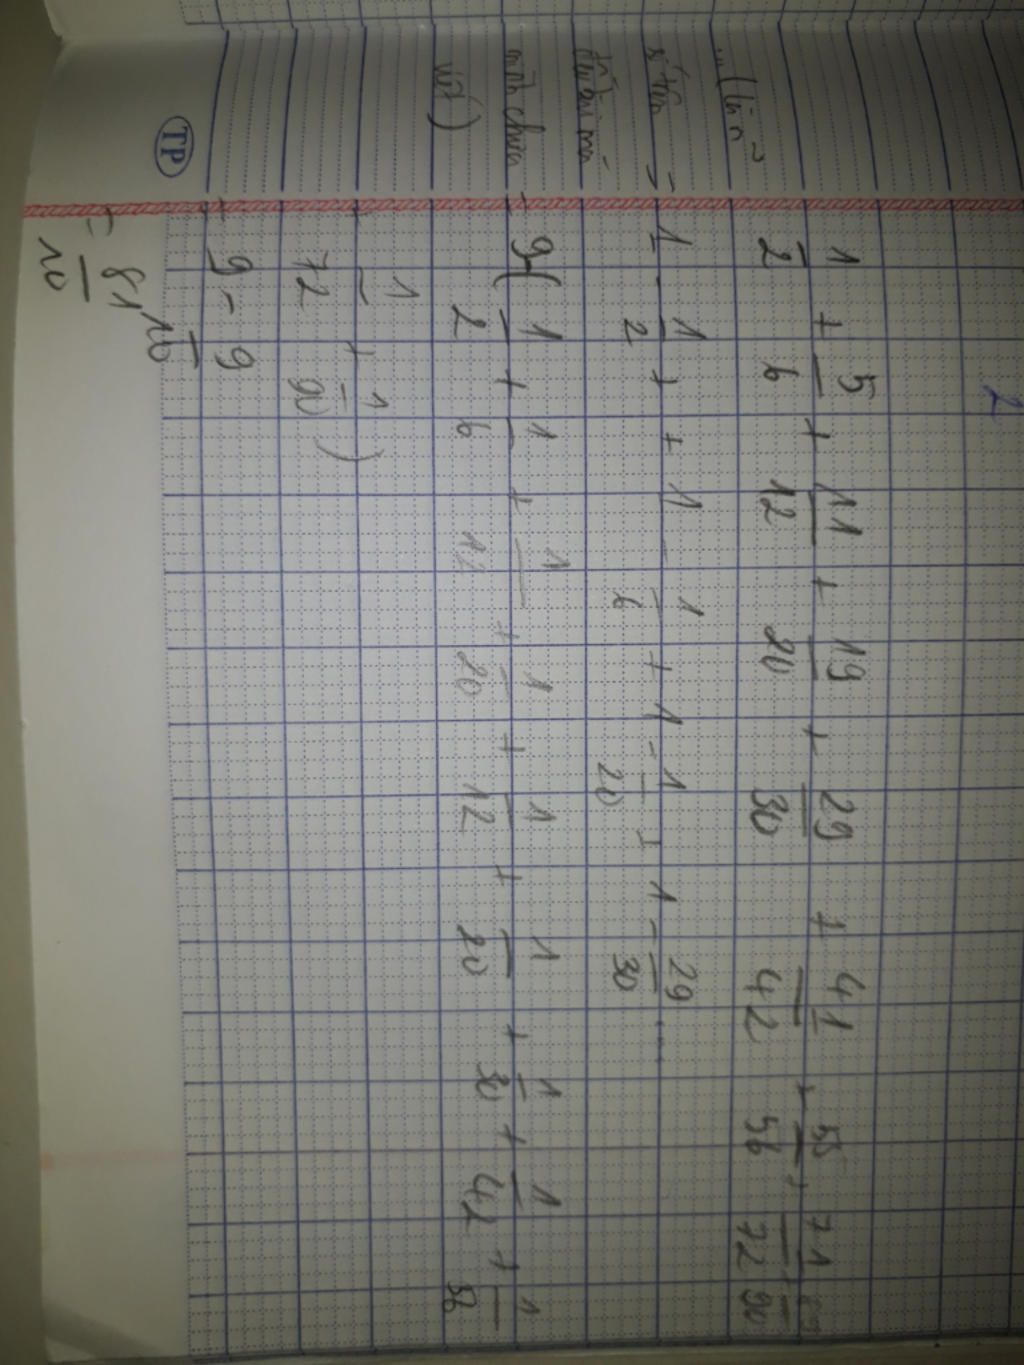 2
1/2 + 5/6 + 11/12 + 19/20 + 29/30 + 41/42 + 55/56 + 71/72 + 89/90
1 - 1/2 + + 1 - 1/6 + 1 - 1/20 + 1 - 29/30 ...
= 9 - ( 1/2 + 1/6 + 1/12 + 1/20 + 1/12 + 1/20 + 1/30 + 1/42 + 1/56
+ 1/72 + 1/90 )
= 9 - 9/10
= 81/10
mình chưa
TP